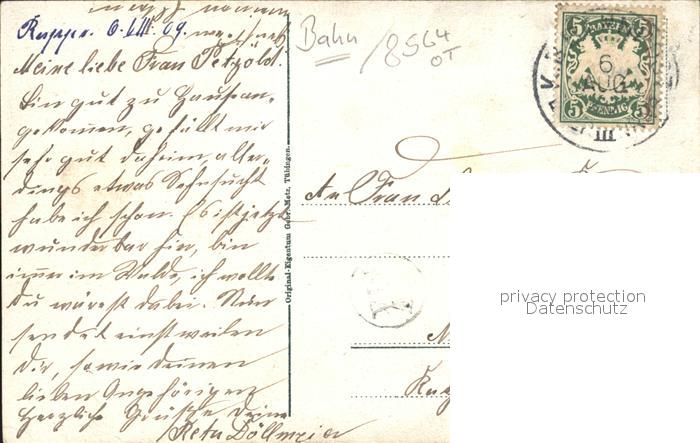 Ruppr. 6. VIII. 09.
Meine liebe Frau Petzold!
Bin gut zu Hause an-
gekommen, gefällt mir
sehr gut daheim, aller-
dings etwas Sehnsucht
habe ich schon. Es ist jetzt
wunderbar hier, bin
immer im Walde, ich wollte
Du wärest dabei. Nun
sendet einstweilen
Dir, sowie deinen
lieben Angehörigen
herzliche Grüße Deine
Reta Döllmeier
Original-Eigentum Gebr. Metz, Tübingen.
Bahn
8564
OT
BAYERN
5 5
5 PFENNIG 5
6
AUG
III
An Frau
privacy protection
Datenschutz